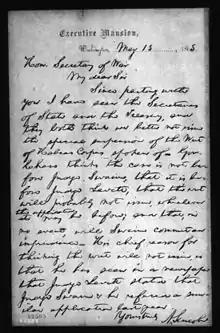 Executive Mansion,
Washington, May 13, 1863
Hon. Secretary of War
My dear Sir
Since parting with
you I have seen the Secretaries
of State and the Treasury, and
they both think we better not issue
the special suspension of the Writ
of Habeas Corpus spoken of. Gov.
Chase thinks the case is not be-
fore Judge Swaine, that it is be-
fore Judge Leavett, that the writ
will probably not issue, whichever
the application
may be before; and that, in
no event, will Swaine commit an
imprudence. His chief reason for
thinking the writ will not issue, is
that he has seen in a newspaper
that Judge Leavett stated that
Judge Swaine & he refused a simi-
lar application last year.
Yours truly
A. Lincoln